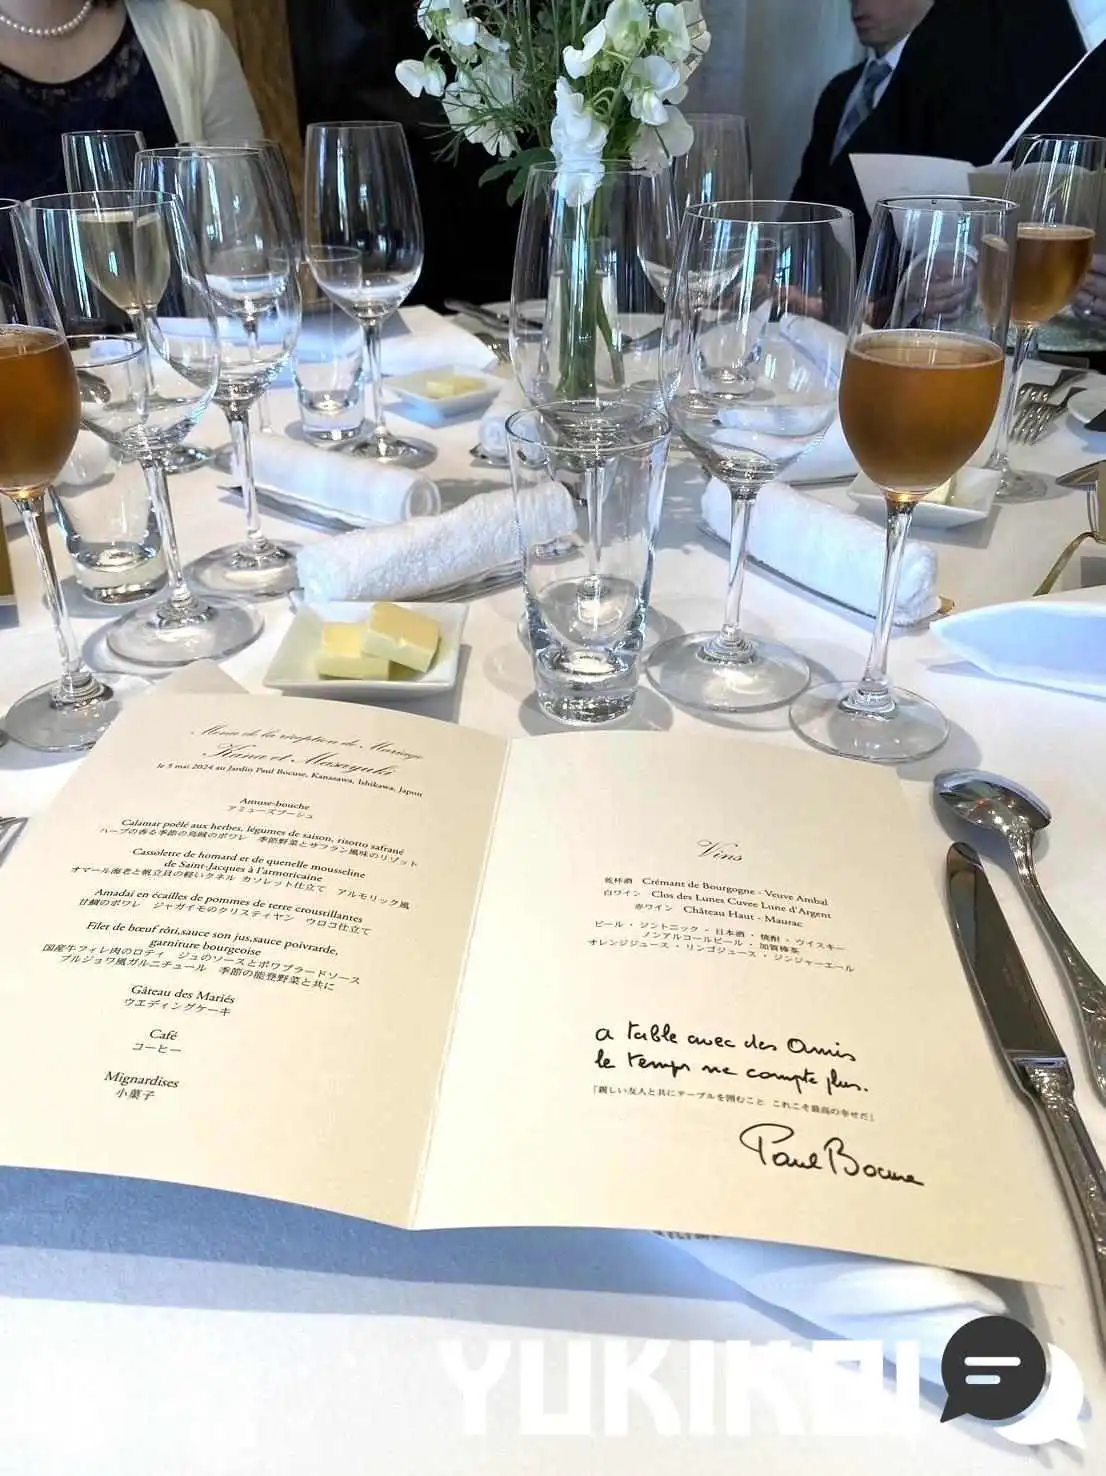 Menu de la réception de Mariage
Kana et Masayuki
le 5 mai 2024 au Jardin Paul Bocuse, Kanazawa, Ishikawa, Japan
Amuse-bouche
アミューズブーシュ
Calamar poêlé aux herbes, légumes de saison, risotto safrané
ハーブの香る季節の烏賊のポワレ　季節野菜とサフラン風味のリゾット
Cassolette de homard et de quenelle mousseline
de Saint-Jacques à l'armoricaine
オマール海老と帆立貝の軽いクネル カソレット仕立て　アルモリック風
Amadai en écailles de pommes de terre croustillantes
甘鯛のポワレ　ジャガイモのクリスティヤン　ウロコ仕立て
Filet de bœuf rôti,sauce son jus,sauce poivrarde,
garniture bourgeoise
国産牛フィレ肉のロティ　ジュのソースとポワブラードソース
ブルジョワ風ガルニチュール　季節の能登野菜と共に
Gâteau des Mariés
ウエディングケーキ
Café
コーヒー
Mignardises
小菓子
Vins
乾杯酒　Crémant de Bourgogne - Veuve Ambal
白ワイン　Clos des Lunes Cuvee Lune d'Argent
赤ワイン　Château Haut - Maurac
ビール ・ ジントニック ・ 日本酒 ・ 焼酎 ・ ウイスキー
ノンアルコールビール ・ 加賀棒茶
オレンジジュース ・ リンゴジュース ・ ジンジャーエール
a table avec des Amis
le temps ne compte plus.
「親しい友人と共にテーブルを囲むこと これこそ最高の幸せだ」
Paul Bocuse
YUKIKOI